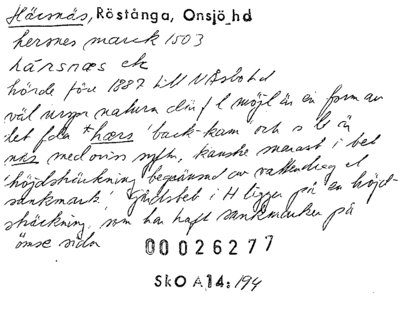 Härsnäs, Röstånga, Onsjö hd
hersnes marck 1503
härsnæs ek
hörde före 1887 till N Åsbo hd
väl urspr naturn där f l möjl är en form av
det fda *hærs 'back-kam och s l är
näs med oviss syftn, kanske snarast i bet
'höjdsträckning begränsad av vattendrag el
sankmark'. Gårdsbeb i H ligger på en höjd-
sträckning, som har haft sankmarker på
ömse sidor
00026277
SkO A14: 194